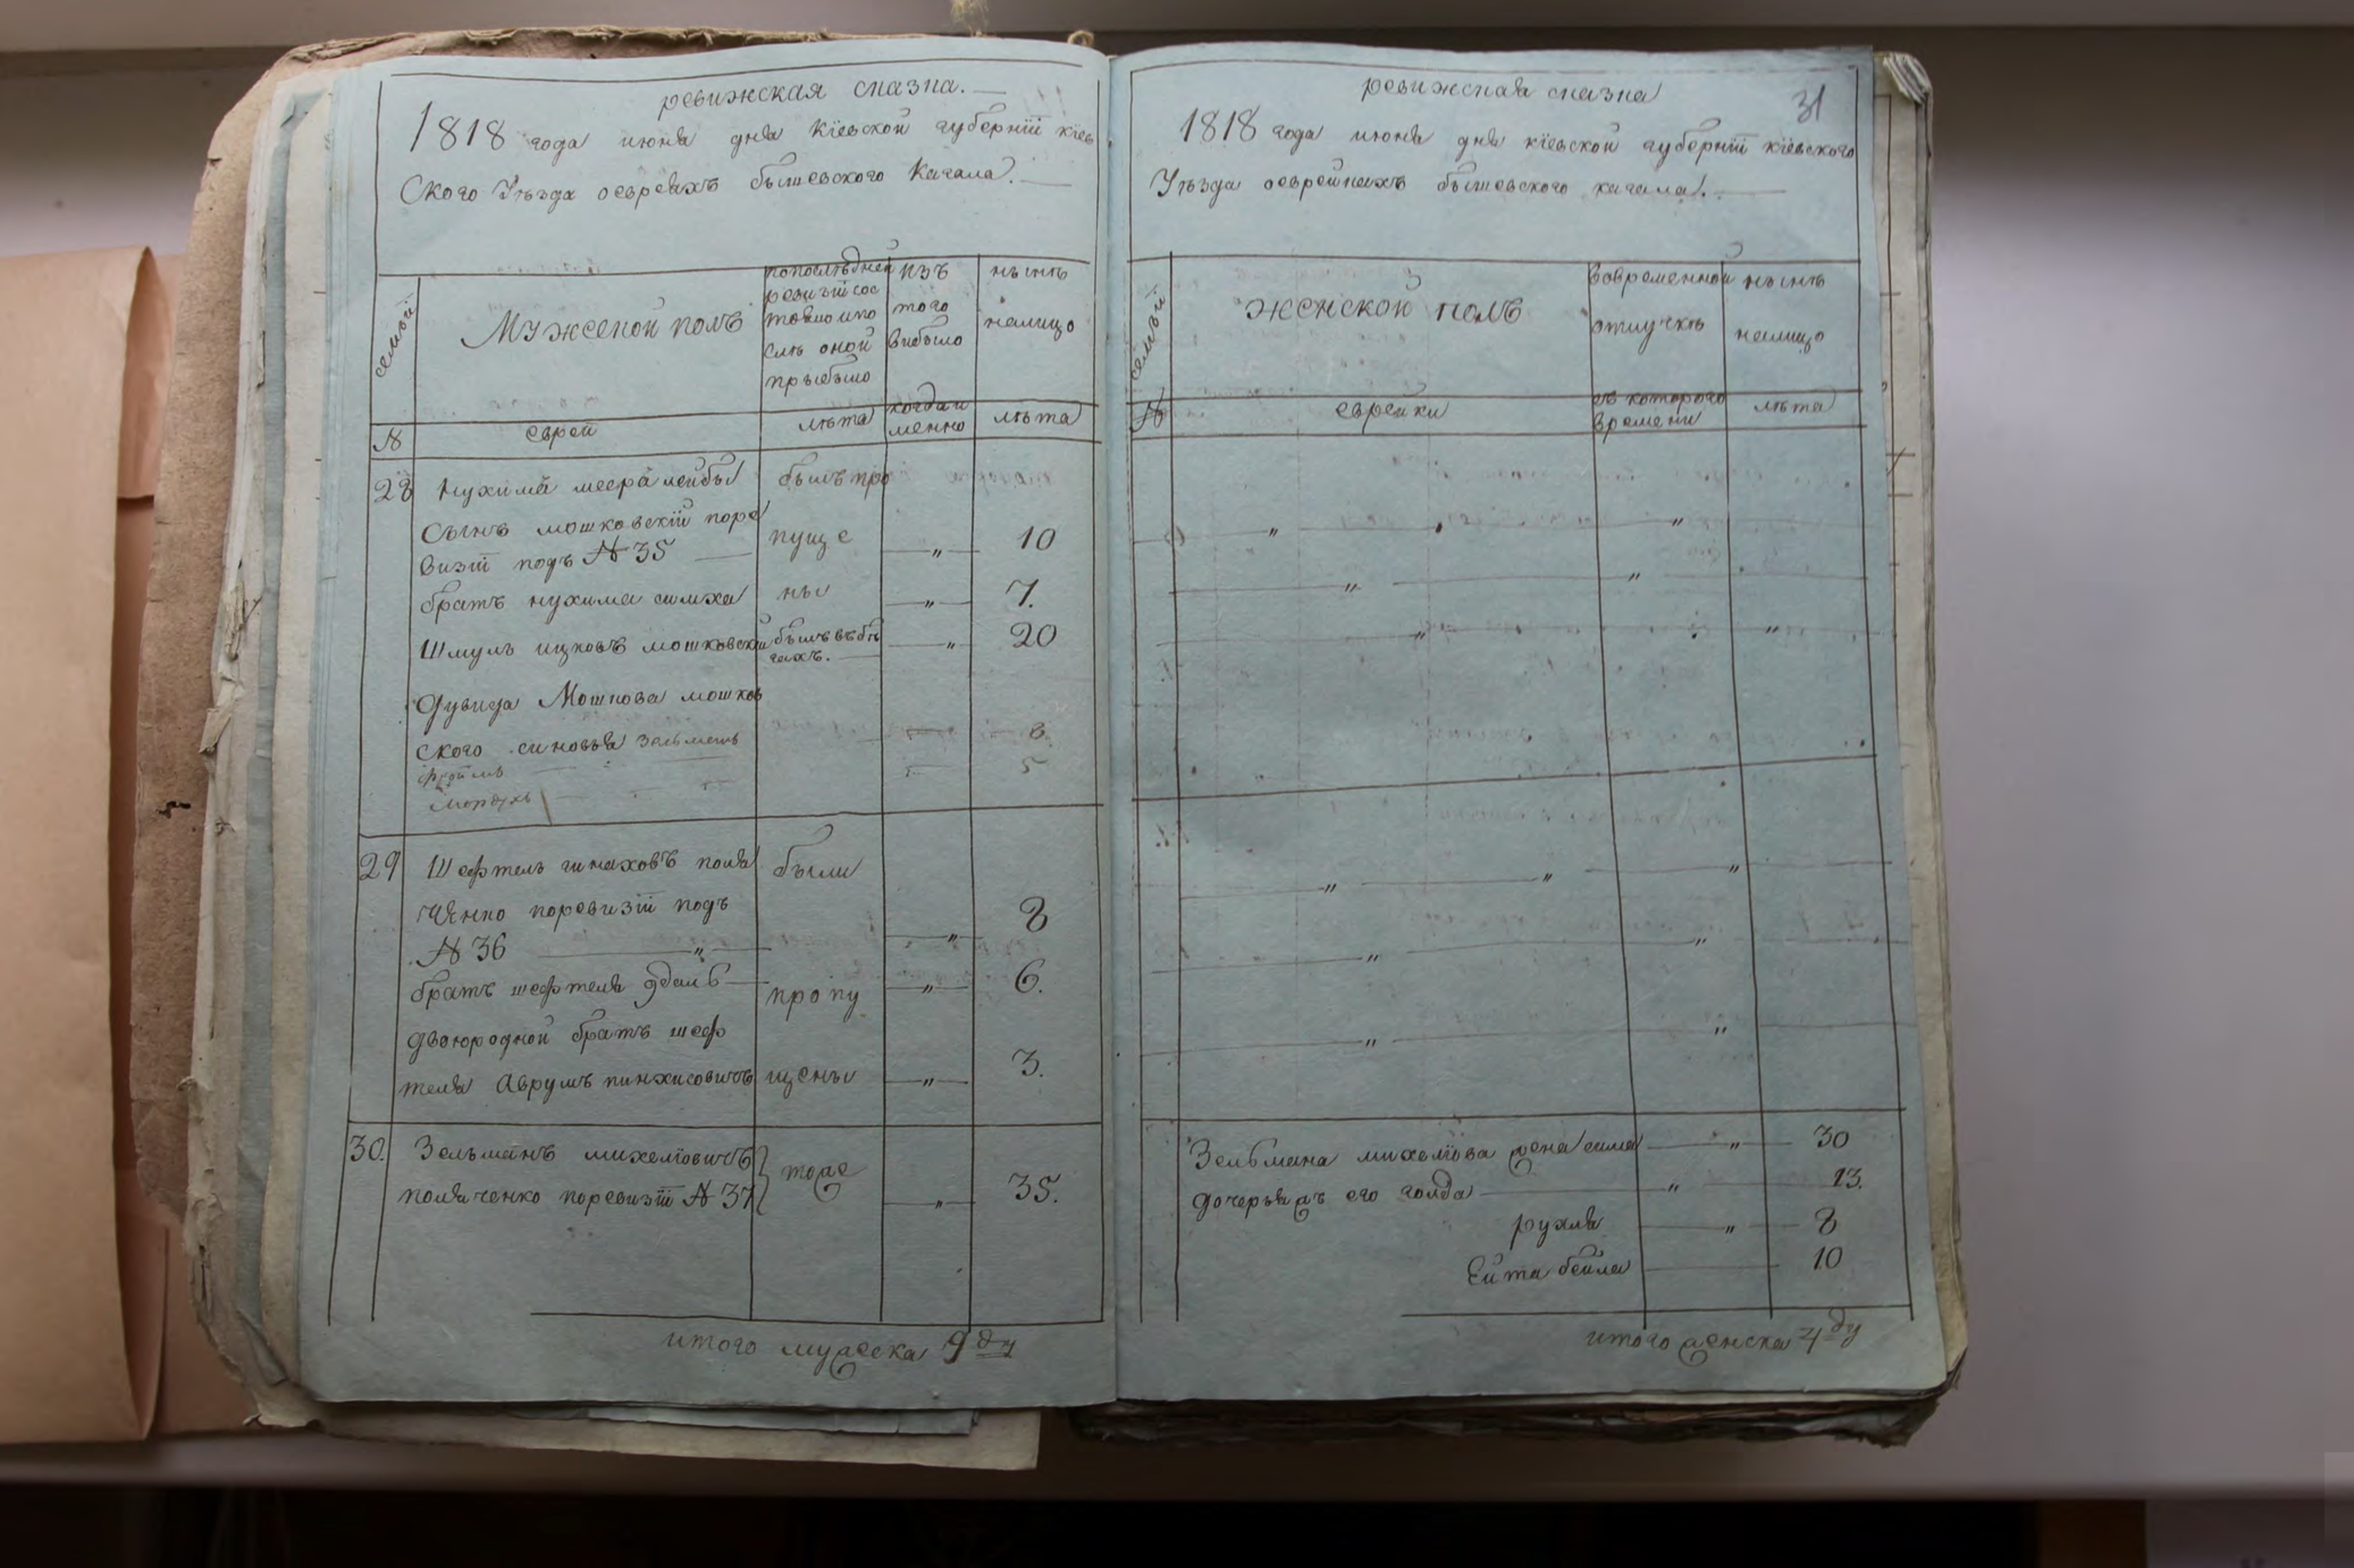 ревижская сказка.
1818 года июня дня Кіевской губерніи кіев
Ского Уѣзда оевреяхъ бышевского Кагала.
семьи
Мужеской полъ
попослѣдней
ревизіи сос
тояло ипо
слѣ оной
прыбыло
изъ
того
выбыло
нынѣ
налицо
№
еврей
лѣта
когдаи
менно
лѣта
28 Нухимъ меера лейбы былъ про
Сынъ мошковскій поре
визіи подъ № 35 пуще „ 10
братъ нухима симха ны „ 7.
Шмуль ицковъ мошковскій былъ въ бѣ „ 20
гахъ.
дувида Мошкова мошков
ского синовья зельманъ 8.
5
29 Шефтель поля были
ченко поревизіи подъ
№ 36 „ „ 8
братъ шефтеля пропу „ 6.
двоюродной братъ шеф
теля Аврумъ пинхисовичъ щены „ 3.
30. Зельманъ михелiовичъ тоже
поляченко поревизіи № 37 „ 35.
итого мужеска 9 ду
ревижская сказка
31
1818 года июня дня кіевской губерніи кіевского
Уѣзда оеврейкахъ бышевского кагала.
семьи
женской полъ
вовременной
отлучкѣ
нынѣ
налицо
№
еврейки
съ которого
времени
лѣта
„ „ „
„ „
„ „
„ „ „
„ „
„ „
Зельмана михелiова жена сима „ 30
дочерья жъ его голда „ 13.
рухля „ 8
Ейта бейла 10
итого женска 4 ду